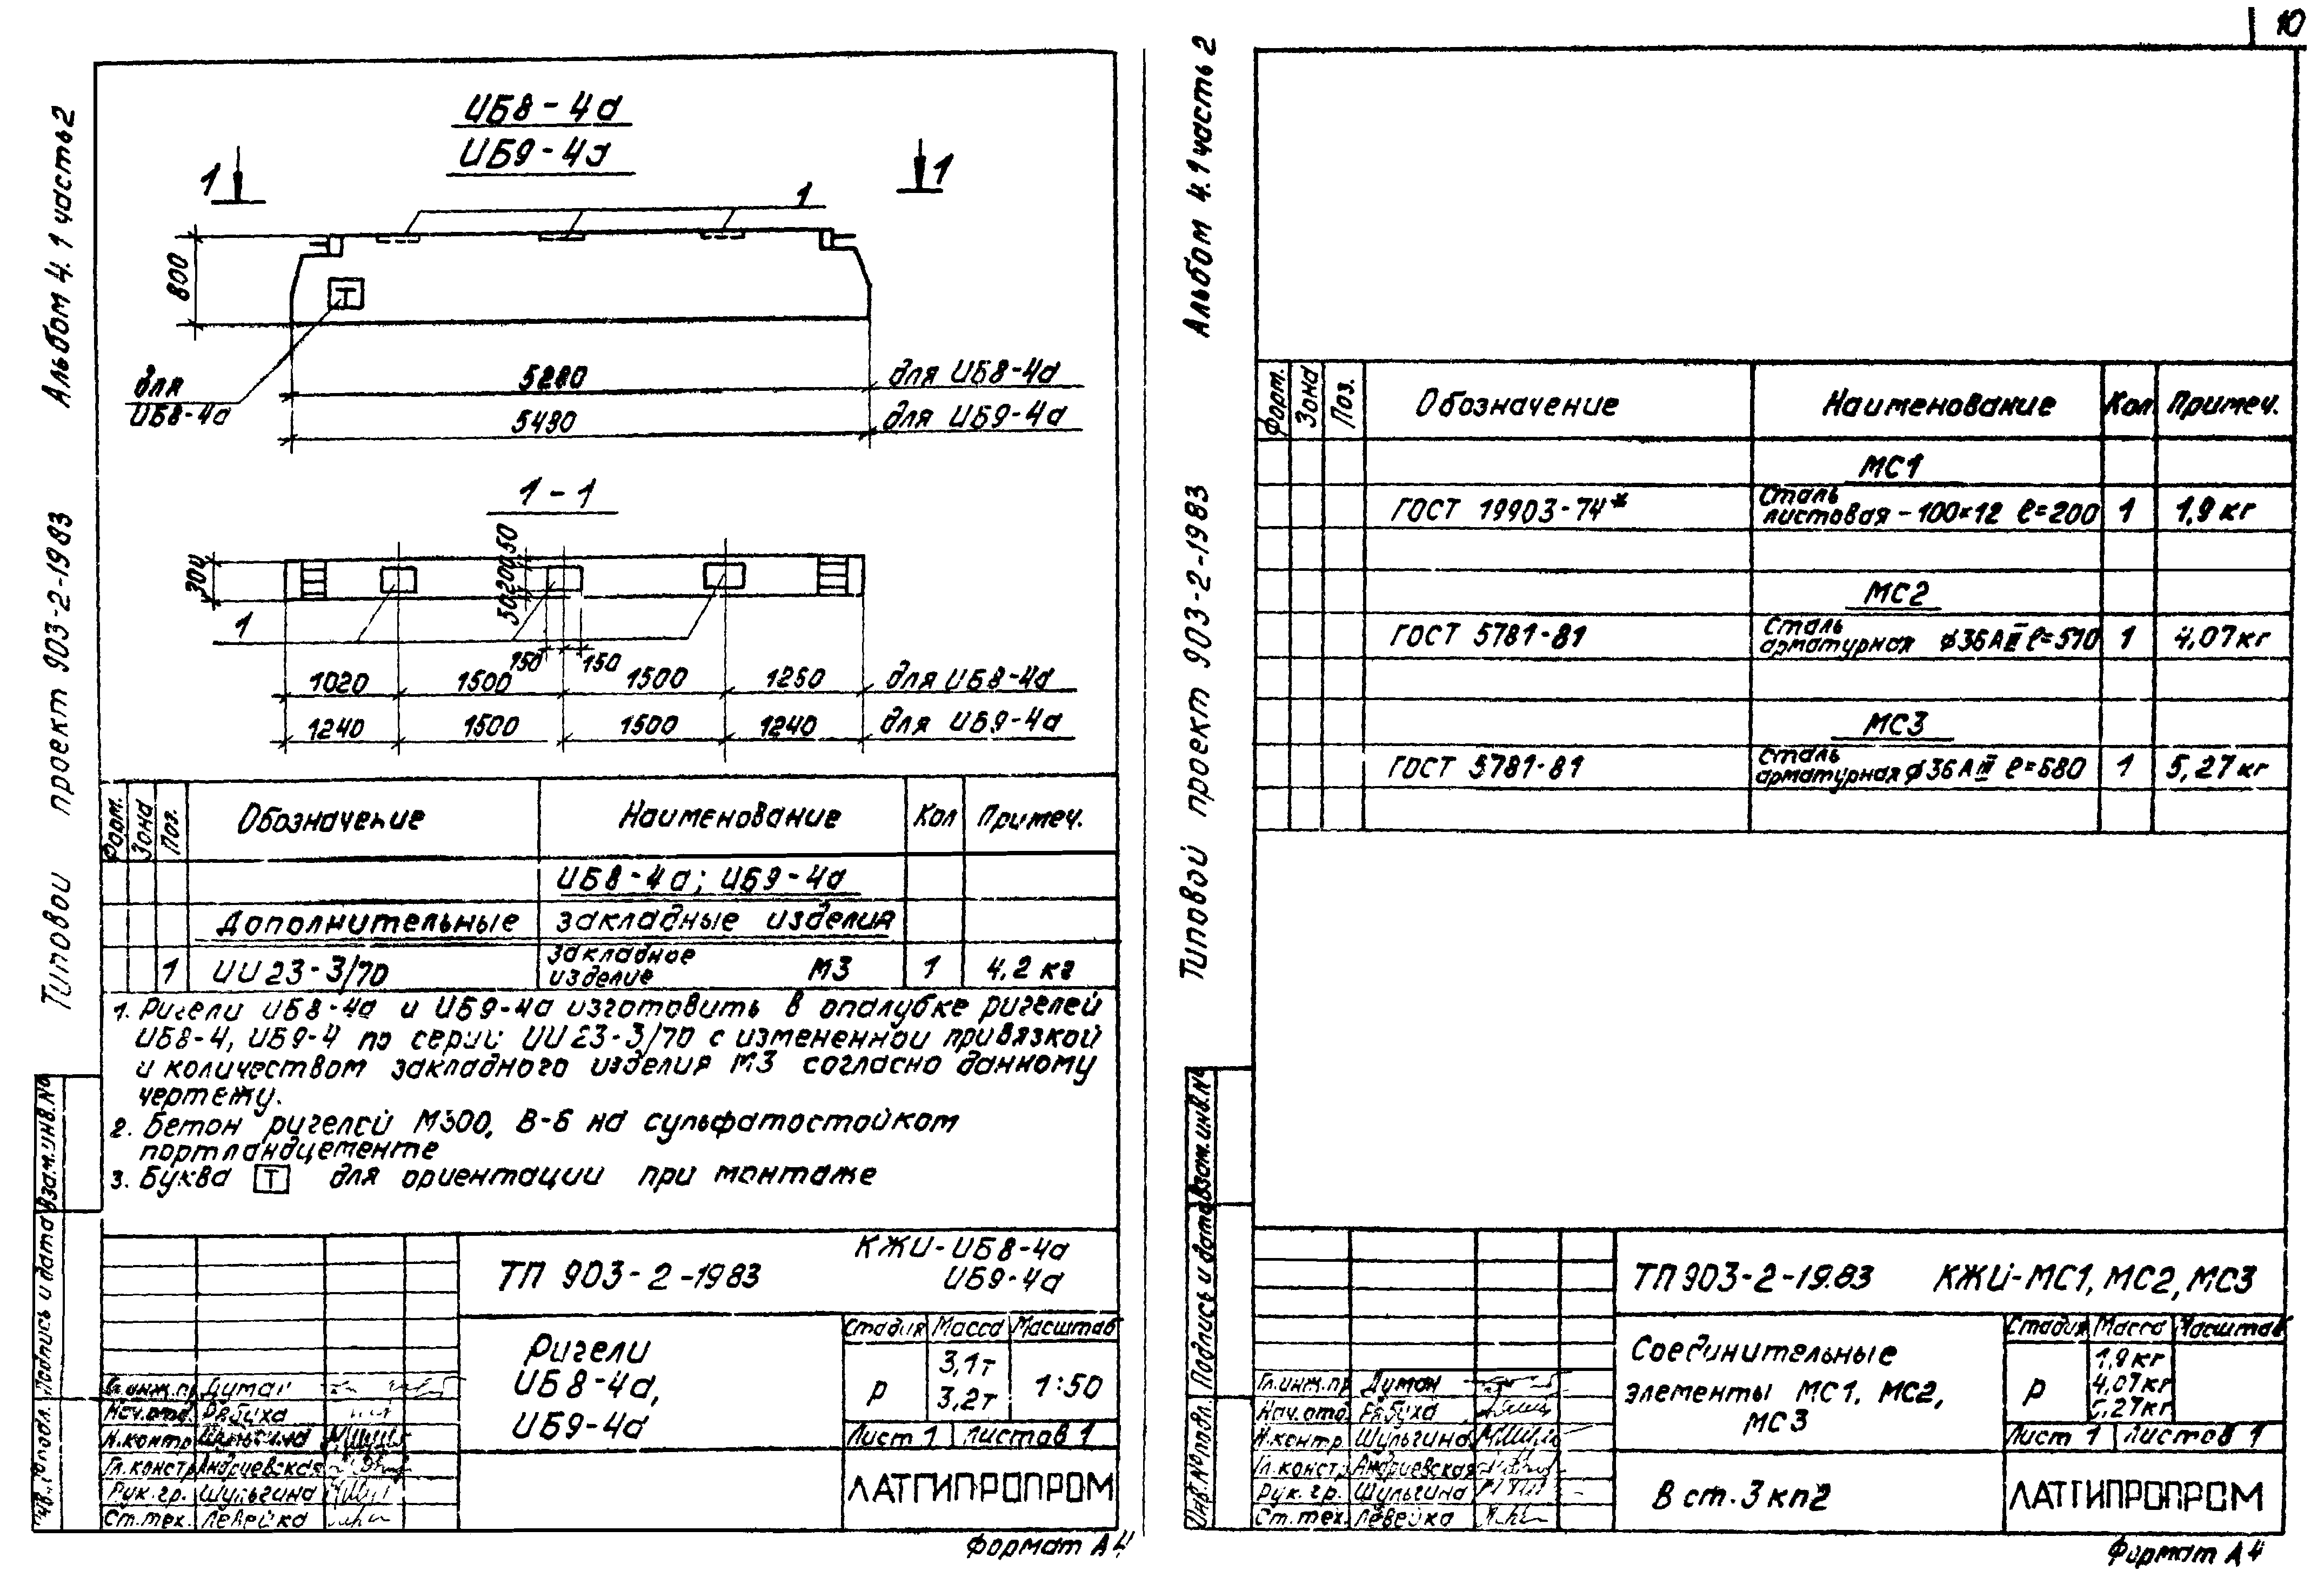 10
Альбом 4.1 часть 2
Типовой проект 903-2-1983
ИБ8-4а
ИБ9-4а
1 1
1
800
Т
для
ИБ8-4а
5280 для ИБ8-4а
5480 для ИБ9-4а
1-1
300
50 200 50
1
150 150
1020 1500 1500 1260 для ИБ8-4а
1240 1500 1500 1240 для ИБ9-4а
Форм. Зона Поз. Обозначение Наименование Кол Примеч.
ИБ8-4а; ИБ9-4а
Дополнительные закладные изделия
1 ИИ23-3/70 Закладное изделие М3 1 4.2 кг
1. Ригели ИБ8-4а и ИБ9-4а изготовить в опалубке ригелей
ИБ8-4, ИБ9-4 по серии ИИ23-3/70 с измененной привязкой
и количеством закладного изделия М3 согласно данному
чертежу.
2. Бетон ригелей М300, В-6 на сульфатостойком
портландцементе
3. Буква Т для ориентации при монтаже
Взам.инв.№
Подпись и дата
ТП 903-2-1983 КЖИ-ИБ8-4а
ИБ9-4а
Ригели
ИБ8-4а,
ИБ9-4а
Стадия Масса Масштаб
Р 3,1т 3,2т 1:50
Лист 1 Листов 1
ЛАТГИПРОПРОМ
Гл.инж.пр Думан
Нач.отд. Рябуха
Н.контр. Шульгина
Гл.констр Андриевская
Рук.гр. Шульгина
Ст.тех. Левейка
Формат А4
Альбом 4.1 часть 2
Типовой проект 903-2-1983
Форм. Зона Поз. Обозначение Наименование Кол Примеч.
МС1
ГОСТ 19903-74* Сталь листовая -100×12 ℓ=200 1 1,9 кг
МС2
ГОСТ 5781-81 Сталь арматурная ф36АIII ℓ=510 1 4,07кг
МС3
ГОСТ 5781-81 Сталь арматурная ф36АIII ℓ=680 1 5,27кг
Взам.инв.№
Подпись и дата
Инв.№подл.
ТП 903-2-19.83 КЖИ-МС1, МС2, МС3
Соединительные
элементы МС1, МС2,
МС3
Стадия Масса Масштаб
Р 1,9кг
4,07кг
5,27кг
Лист 1 Листов 1
В ст.3 кп2
ЛАТГИПРОПРОМ
Гл.инж.пр Думан
Нач.отд. Рябуха
Н.контр. Шульгина
Гл.констр Андриевская
Рук.гр. Шульгина
Ст.тех. Левейка
Формат А4